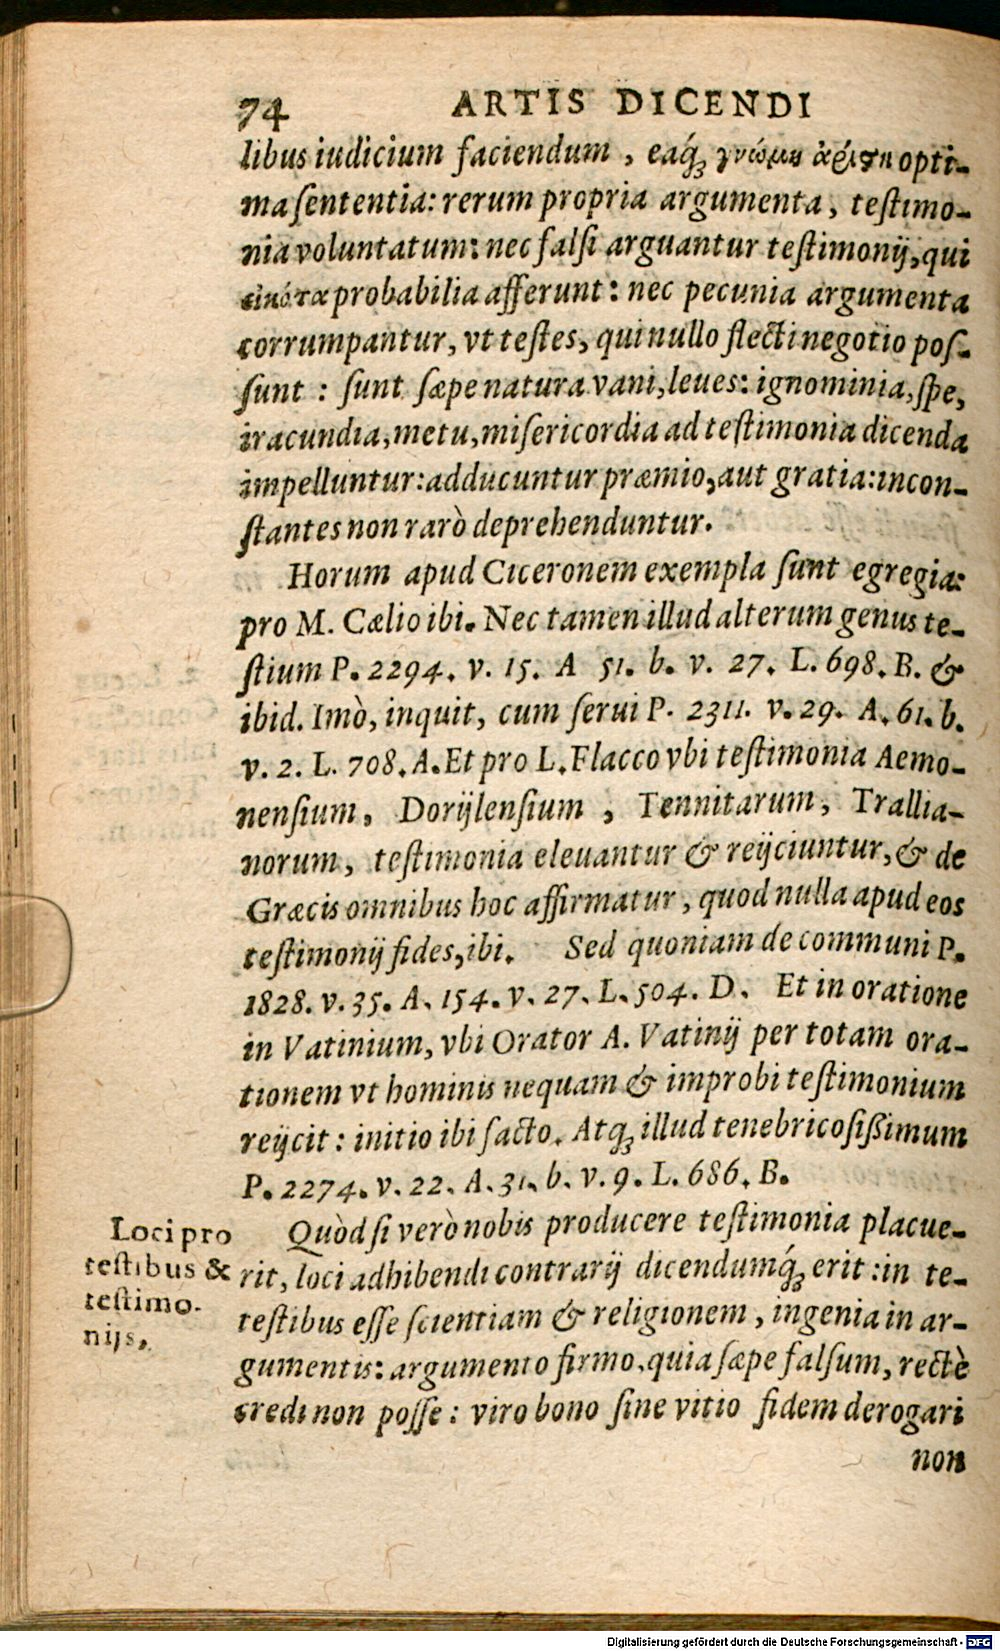 74 ARTIS DICENDI
libus iudicium faciendum, eaq́ꝫ γνώμῃ ἀρίστῃ opti-
ma sententia: rerum propria argumenta, testimo-
nia voluntatum: nec falsi arguantur testimonij, qui
εἰκότα probabilia afferunt: nec pecunia argumenta
corrumpantur, vt testes, qui nullo flecti negotio pos-
sunt: sunt sæpe natura vani, leues: ignominia, spe,
iracundia, metu, misericordia ad testimonia dicenda
impelluntur: adducuntur præmio, aut gratia: incon-
stantes non rarò deprehenduntur.
Horum apud Ciceronem exempla sunt egregia:
pro M. Cælio ibi. Nec tamen illud alterum genus te-
stium P. 2294. v. 15. A 51. b. v. 27. L. 698. B. &
ibid. Imò, inquit, cum serui P. 2311. v. 29. A. 61. b.
v. 2. L. 708. A. Et pro L. Flacco vbi testimonia Aemo-
nensium, Dorijlensium, Temnitarum, Trallia-
norum, testimonia eleuantur & reijciuntur, & de
Græcis omnibus hoc affirmatur, quod nulla apud eos
testimonij fides, ibi. Sed quoniam de communi P.
1828. v. 35. A. 154. v. 27. L. 504. D. Et in oratione
in Vatinium, vbi Orator A. Vatinij per totam ora-
tionem vt hominis nequam & improbi testimonium
reijcit: initio ibi facto. Atqꝫ illud tenebricosißimum
P. 2274. v. 22. A. 31. b. v. 9. L. 686. B.
Quòd si verò nobis producere testimonia placue-
rit, loci adhibendi contrarij dicendumq́ꝫ erit: in te-
testibus esse scientiam & religionem, ingenia in ar-
gumentis: argumento firmo, quia sæpe falsum, rectè
credi non posse: viro bono sine vitio fidem derogari
non
Loci pro
testibus &
testimo-
nijs.
Digitalisierung gefördert durch die Deutsche Forschungsgemeinschaft - DFG